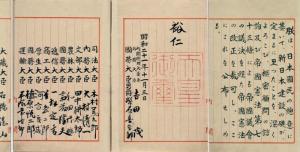 朕は、日本国民の総意に
基いて、新日本建設の礎が、
定まるに至つたことを、深く
よろこび、枢密顧問の諮
詢及び帝国憲法第七十
三条による帝国議会
の議決を経た帝国憲法
の改正を裁可し、ここに
これを公布せしめる。
裕仁
天皇御璽
昭和二十一年十一月三日
内閣総理大臣兼外務大臣 吉田茂
国務大臣 男爵 幣原喜重郎
司法大臣 木村篤太郎
内務大臣 大村清一
文部大臣 田中耕太郎
農林大臣 和田博雄
国務大臣 斎藤隆夫
逓信大臣 一松定吉
商工大臣 星島二郎
厚生大臣 河合良成
国務大臣 植原悦二郎
運輸大臣 平塚常次郎
大蔵大臣 石橋湛山